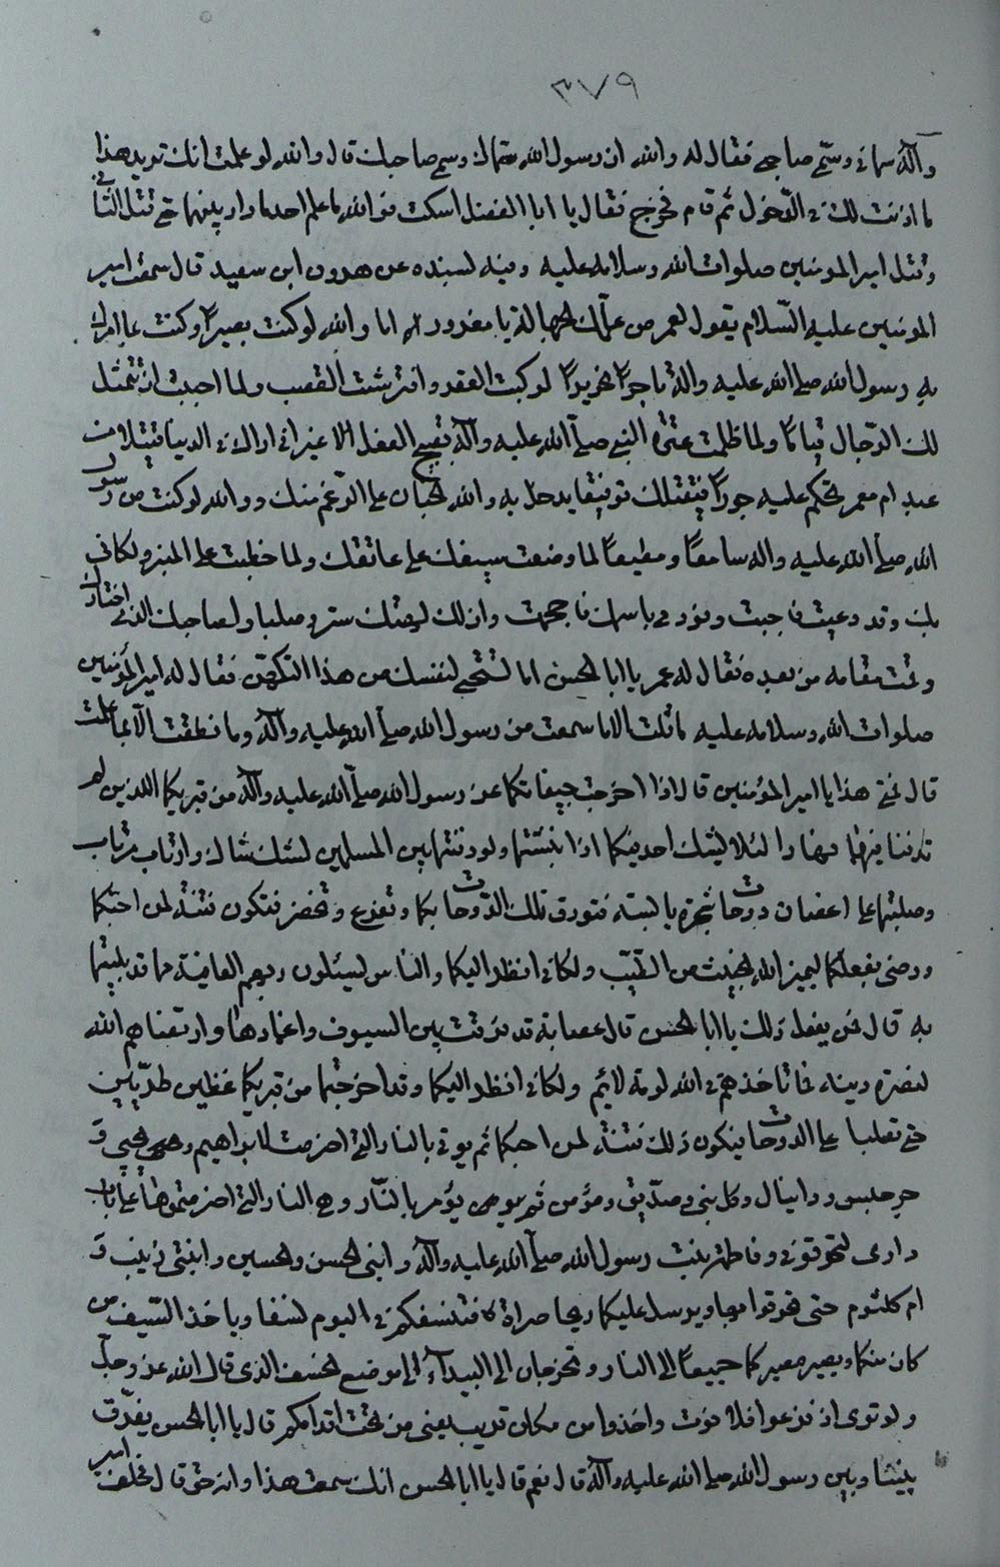 ٣٧٩
وآله سماني وسمّى صاحبي فقال له والله ان رسول الله سماك وسمى صاحبك قال والله لو علمت انك تريد هذا
ما اذنت لك في الدّخول ثم قام فخرج فقال يا ابا الفضل اسكت فوالله ما علم احد ما واد بينهما حتى قتل الثاني
وقتل امير المومنين صلوات الله وسلامه عليه وفيه بسنده عن هرون ابن سعيد قال سمعت امير
المومنين عليه السّلام يقول لعمر من علّمك الجهالة يا مغرور اما والله لو كنت بصيرًا وكنت بما امرك
به رسول الله صلى الله عليه واله تاجرًا نحريرًا لركبت العقر وافترشت القصب ولما احببت ان تتمثل
لك الرّجال قيامًا ولما ظلمت عترة النبي صلى الله عليه وآله بقبيح الفعل الا غير اني اراك في الدنيا قتيلا من
عبد ام معمر تحكم عليه جورًا فيقتلك توفيقا يدخل به والله الجنان على الرّغم منك و والله لو كنت من رسول
الله صلى الله عليه واله سامعًا ومطيعًا لما وضعت سيفك على عاتقك ولما خطبت على المنبر ولكاني
بك وقد دعيت فاجبت ونودي باسمك فاحجمت وان لك لهتك ستر وصلبا ولصاحبك الذي اختارك
وقمت مقامه من بعده فقال له عمر يا ابا الحسن اما تستحي لنفسك من هذا التكهّن فقال له امير المؤمنين
صلوات الله وسلامه عليه ما قلت الا ما سمعت من رسول الله صلى الله عليه وآله وما نطقت الّا بما علمت
قال فمتى هذا يا امير المؤمنين قال اذا اخرجت جيفاتكما عن رسول الله صلّى الله عليه وآله من قبريكما اللذين لم
تدفنا فيهما نهارا لئلا يشك احد فيكما اذا نبشتما ولو دفنتما بين المسلمين لشك شاك وارتاب مرتاب
وصلبتما على اغصان دوحات شجرة يابسة فتورق تلك الدّوحات بكما وتفرع وتخضر فتكون فتنة لمن احبّكما
ورضى بفعلكما ليميز الله الخبيث من الطيّب ولكاني انظر اليكما والناس يسئلون ربهم العافية مما قد بليتما
به قال فمن يفعل ذلك يا ابا الحسن قال عصابة قد فرقت بين السيوف واغمادها وارتضاهم الله
لنصرة دينه فما تاخذهم في الله لومة لائم ولكاني انظر اليكما وقد اخرجتما من قبريكما غظين طريّين
حتى تصلبا على الدوحات فيكون ذلك فتنة لمن احبكما ثم يؤتى بالنار التي اضرمت لابراهيم ويحيى و
جرجيس ودانيال وكل نبى وصدّيق ومؤمن ثم يؤمر بالنّار وهي النار التي اضرمتموها على باب
داري لتحرقوني وفاطمة بنت رسول الله صلّى الله عليه وآله وابني الحسن والحسين وابنتي زينب و
ام كلثوم حتى تحرقوا بها ويرسل عليكما ريحا مرة فتنسفكم في اليوم نسفا وياخذ السّيف من
كان منكما ويصير مصيركما جميعًا الى النار وتخرجان الى البيداء الى موضع الخسف الذي قال الله عز وجل
ولو ترى اذ فزعوا فلا فوت واخذوا من مكان قريب يعني من تحت اقدامكم قال يا ابا الحسن يفرّق
بيننا وبين رسول الله صلى الله عليه وآله قال نعم قال يا ابا الحسن انك سمعت هذا وانه حق قال فحلف امير